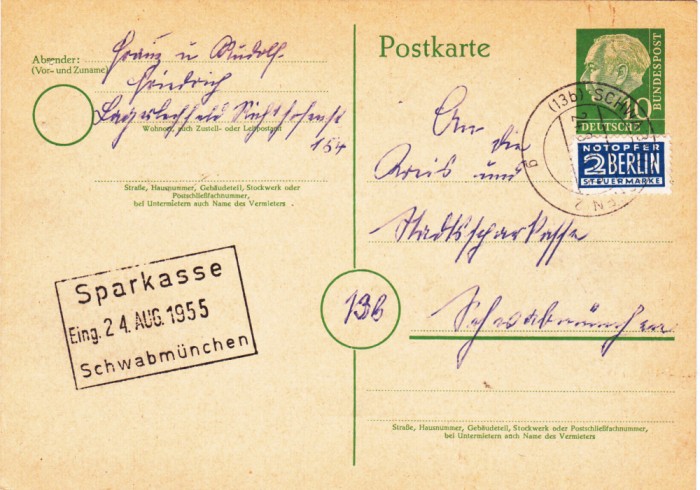 Absender:
(Vor- und Zuname)
Franz u Rudolf
Friedrich
Lagerlechfeld
164
Wohnort, auch Zustell- oder Leitpostamt
Straße, Hausnummer, Gebäudeteil, Stockwerk oder
Postschließfachnummer,
bei Untermietern auch Name des Vermieters
Sparkasse
Eing. 24. AUG. 1955
Schwabmünchen
Postkarte
DEUTSCHE
BUNDESPOST
10
(13b) SCHW
NOTOPFER
2 BERLIN
STEUERMARKE
An die
Kreis und
Stadtsparkasse
13b
Schwabmünchen
Straße, Hausnummer, Gebäudeteil, Stockwerk oder Postschließfachnummer,
bei Untermietern auch Name des Vermieters